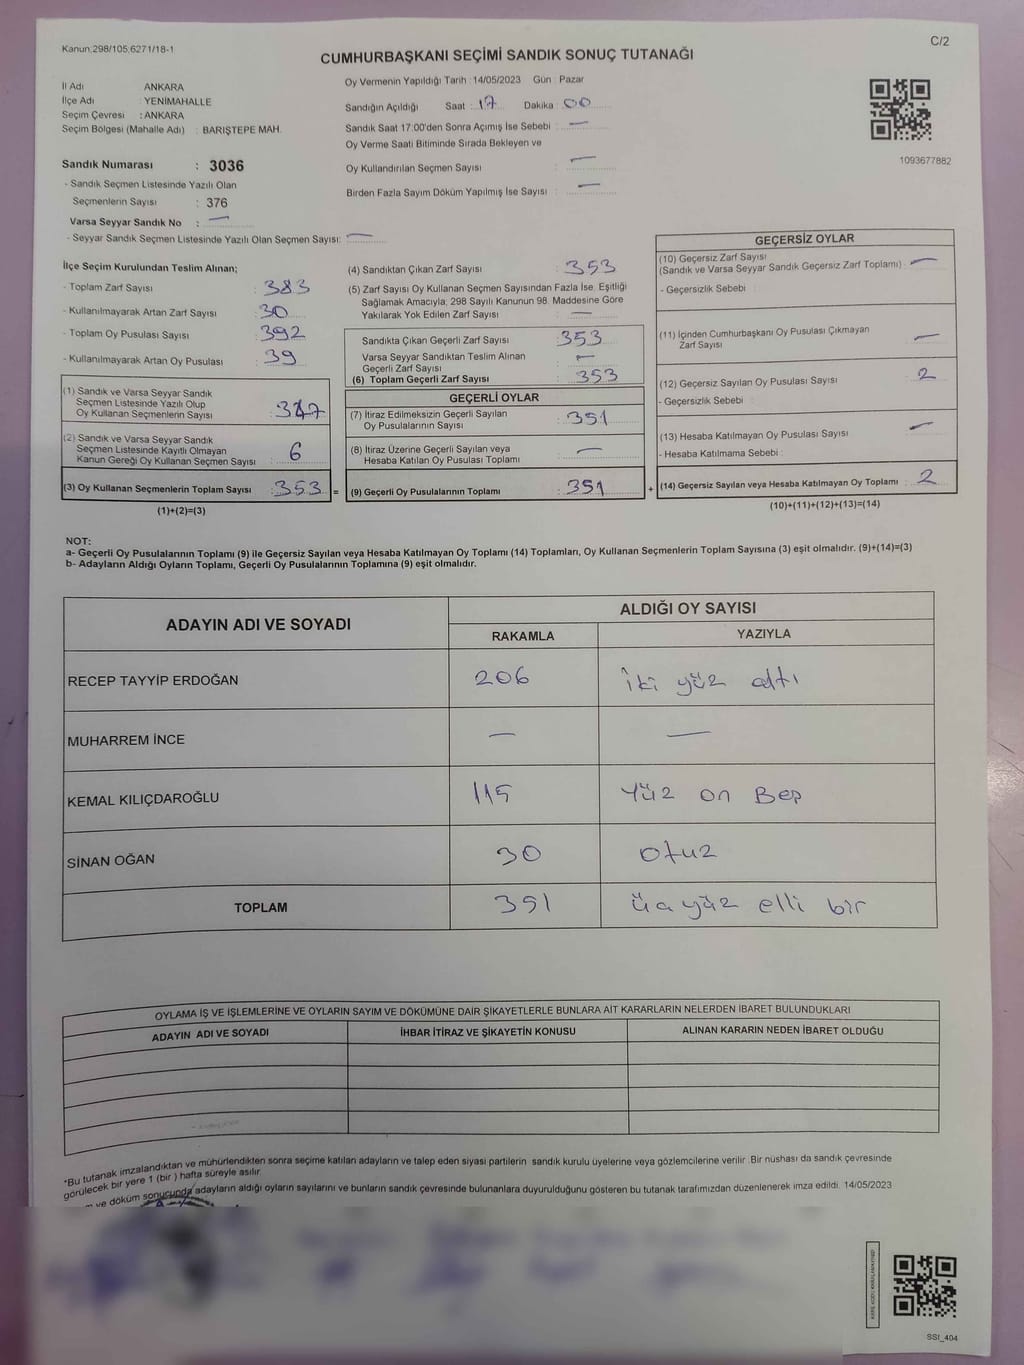 Kanun:298/105,6271/18-1
C/2
CUMHURBAŞKANI SEÇİMİ SANDIK SONUÇ TUTANAĞI
İl Adı ANKARA
İlçe Adı : YENİMAHALLE
Seçim Çevresi : ANKARA
Seçim Bölgesi (Mahalle Adı) : BARIŞTEPE MAH.
Oy Vermenin Yapıldığı Tarih :14/05/2023 Gün : Pazar
Sandığın Açıldığı Saat : 17 Dakika : 00
Sandık Saat 17:00'den Sonra Açımış İse Sebebi : —
Oy Verme Saati Bitiminde Sırada Bekleyen ve
Oy Kullandırılan Seçmen Sayısı : —
Birden Fazla Sayım Döküm Yapılmış İse Sayısı : —
1093677882
Sandık Numarası : 3036
- Sandık Seçmen Listesinde Yazılı Olan
Seçmenlerin Sayısı : 376
Varsa Seyyar Sandık No : —
- Seyyar Sandık Seçmen Listesinde Yazılı Olan Seçmen Sayısı: —
İlçe Seçim Kurulundan Teslim Alınan;
- Toplam Zarf Sayısı : 383
- Kullanılmayarak Artan Zarf Sayısı : 30
- Toplam Oy Pusulası Sayısı : 392
- Kullanılmayarak Artan Oy Pusulası : 39
(1) Sandık ve Varsa Seyyar Sandık
Seçmen Listesinde Yazılı Olup
Oy Kullanan Seçmenlerin Sayısı : 347
(2) Sandık ve Varsa Seyyar Sandık
Seçmen Listesinde Kayıtlı Olmayan
Kanun Gereği Oy Kullanan Seçmen Sayısı : 6
(3) Oy Kullanan Seçmenlerin Toplam Sayısı : 353 =
(1)+(2)=(3)
(4) Sandıktan Çıkan Zarf Sayısı : 353
(5) Zarf Sayısı Oy Kullanan Seçmen Sayısından Fazla İse, Eşitliği
Sağlamak Amacıyla; 298 Sayılı Kanunun 98. Maddesine Göre
Yakılarak Yok Edilen Zarf Sayısı : —
Sandıkta Çıkan Geçerli Zarf Sayısı : 353
Varsa Seyyar Sandıktan Teslim Alınan
Geçerli Zarf Sayısı : —
(6) Toplam Geçerli Zarf Sayısı : 353
GEÇERLİ OYLAR
(7) İtiraz Edilmeksizin Geçerli Sayılan
Oy Pusulalarının Sayısı : 351
(8) İtiraz Üzerine Geçerli Sayılan veya
Hesaba Katılan Oy Pusulası Toplamı : —
(9) Geçerli Oy Pusulalarının Toplamı : 351 +
GEÇERSİZ OYLAR
(10) Geçersiz Zarf Sayısı
(Sandık ve Varsa Seyyar Sandık Geçersiz Zarf Toplamı) : —
- Geçersizlik Sebebi :
(11) İçinden Cumhurbaşkanı Oy Pusulası Çıkmayan
Zarf Sayısı : —
(12) Geçersiz Sayılan Oy Pusulası Sayısı : 2
- Geçersizlik Sebebi :
(13) Hesaba Katılmayan Oy Pusulası Sayısı : —
- Hesaba Katılmama Sebebi :
(14) Geçersiz Sayılan veya Hesaba Katılmayan Oy Toplamı : 2
(10)+(11)+(12)+(13)=(14)
NOT:
a- Geçerli Oy Pusulalarının Toplamı (9) ile Geçersiz Sayılan veya Hesaba Katılmayan Oy Toplamı (14) Toplamları, Oy Kullanan Seçmenlerin Toplam Sayısına (3) eşit olmalıdır. (9)+(14)=(3)
b- Adayların Aldığı Oyların Toplamı, Geçerli Oy Pusulalarının Toplamına (9) eşit olmalıdır.
ADAYIN ADI VE SOYADI
ALDIĞI OY SAYISI
RAKAMLA YAZIYLA
RECEP TAYYİP ERDOĞAN 206 iki yüz altı
MUHARREM İNCE — —
KEMAL KILIÇDAROĞLU 115 Yüz on Beş
SİNAN OĞAN 30 otuz
TOPLAM 351 üçyüz elli bir
OYLAMA İŞ VE İŞLEMLERİNE VE OYLARIN SAYIM VE DÖKÜMÜNE DAİR ŞİKAYETLERLE BUNLARA AİT KARARLARIN NELERDEN İBARET BULUNDUKLARI
ADAYIN ADI VE SOYADI İHBAR İTİRAZ VE ŞİKAYETİN KONUSU ALINAN KARARIN NEDEN İBARET OLDUĞU
*Bu tutanak imzalandıktan ve mühürlendikten sonra seçime katılan adayların ve talep eden siyasi partilerin sandık kurulu üyelerine veya gözlemcilerine verilir. Bir nüshası da sandık çevresinde
görülecek bir yere 1 (bir ) hafta süreyle asılır.
ve döküm sonucunda adayların aldığı oyların sayılarını ve bunların sandık çevresinde bulunanlara duyurulduğunu gösteren bu tutanak tarafımızdan düzenlenerek imza edildi. 14/05/2023
SSI_404